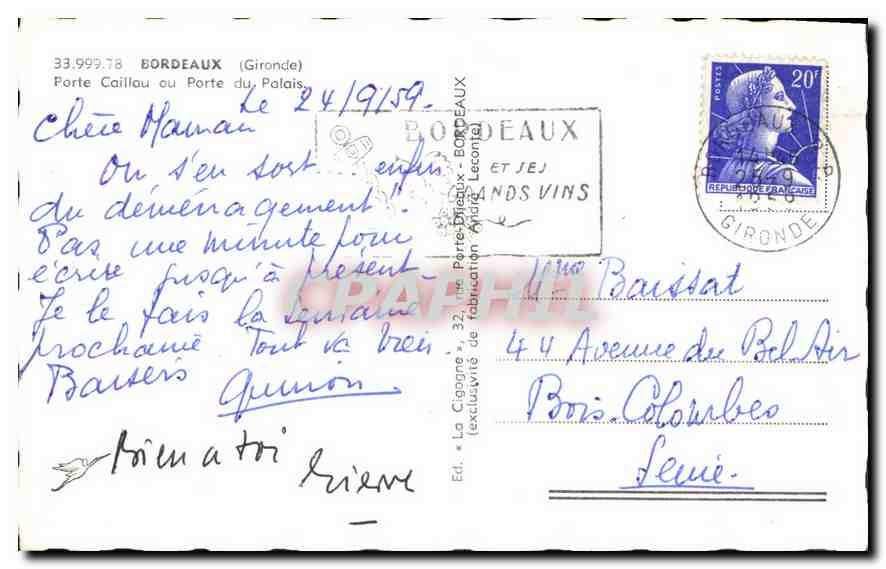 33.999.78 BORDEAUX (Gironde)
Porte Caillau ou Porte du Palais.
Le 24/9/59.
Chère Maman
On s'en sort... enfin
du déménagement!
Pas une minute pour
écrire jusqu'à présent.
Je le fais la semaine
prochaine. Tout va bien.
Baisers
Bien a toi
Pierre
Ed. « La Cigogne », 32, rue Porte-Dijeaux - BORDEAUX
(exclusivité de fabrication André Leconte)
BORDEAUX
ET SES
GRANDS VINS
POSTES
20F
REPUBLIQUE FRANÇAISE
BORDEAUX R.P
1959
GIRONDE
CPAPHIL
Mme Baissat
44 Avenue du Bel Air
Bois-Colombes
Seine.